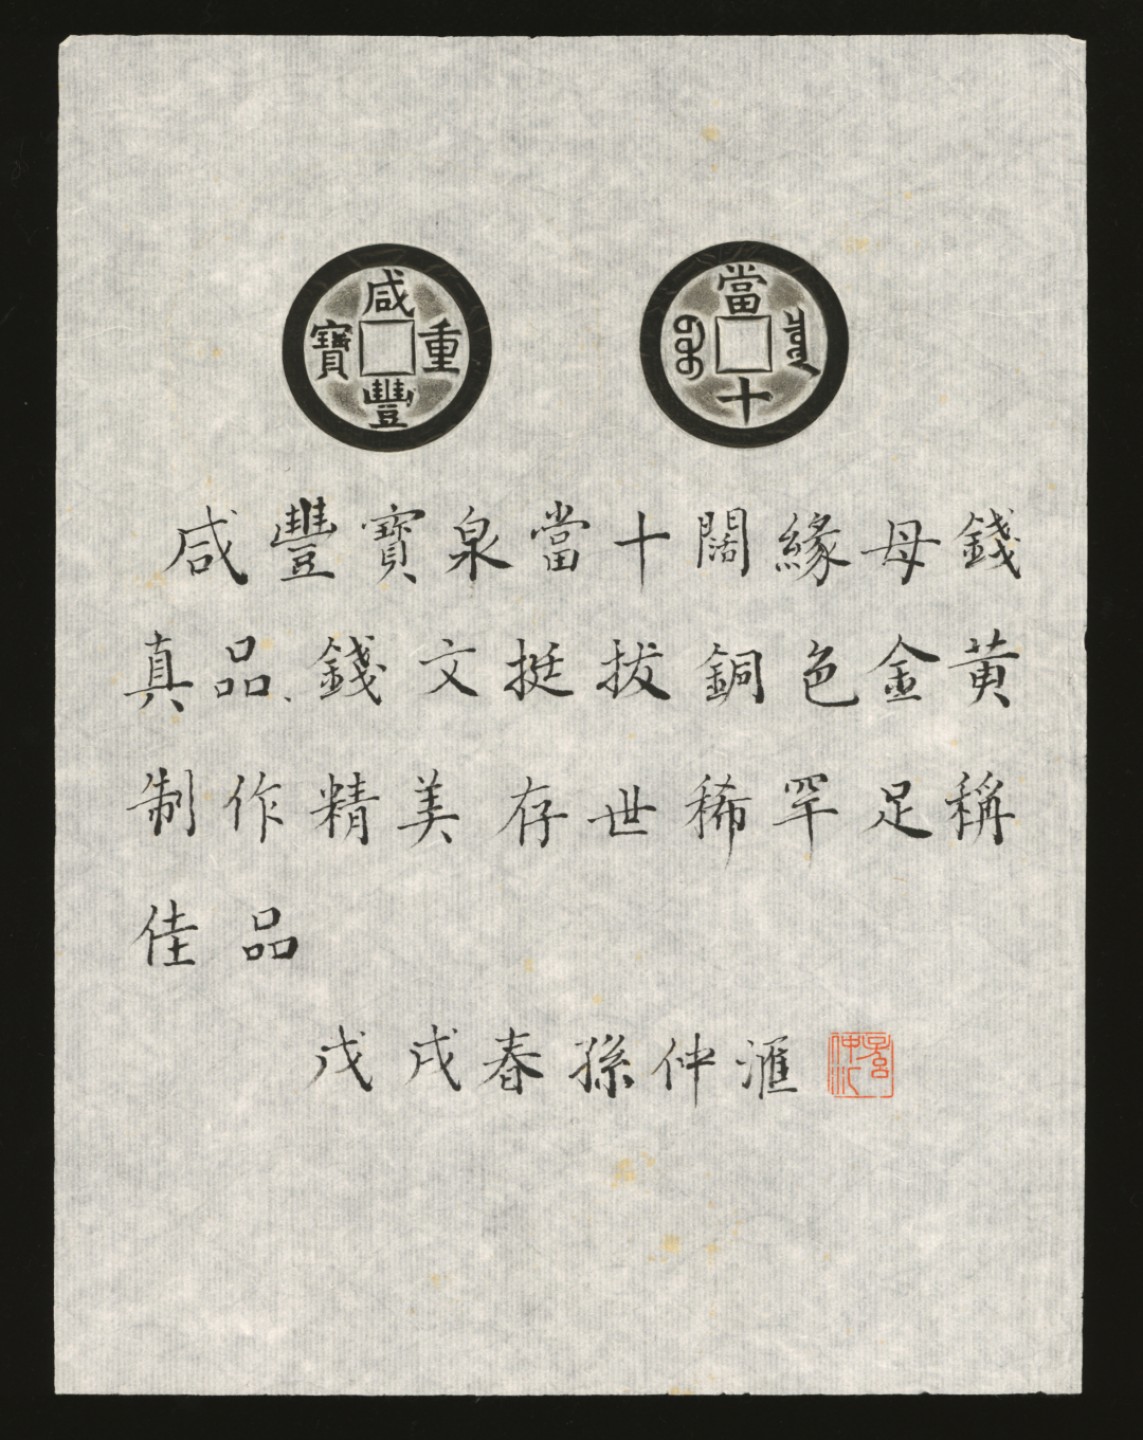 咸豐重寶
當十 ᠪᠣᠣ ᠴᡳᠣᠸᠠᠨ
咸豐寶泉當十闊緣母錢
真品、錢文挺拔銅色金黃
制作精美存世稀罕足稱
佳品
戊戌春孫仲滙
孫仲汇